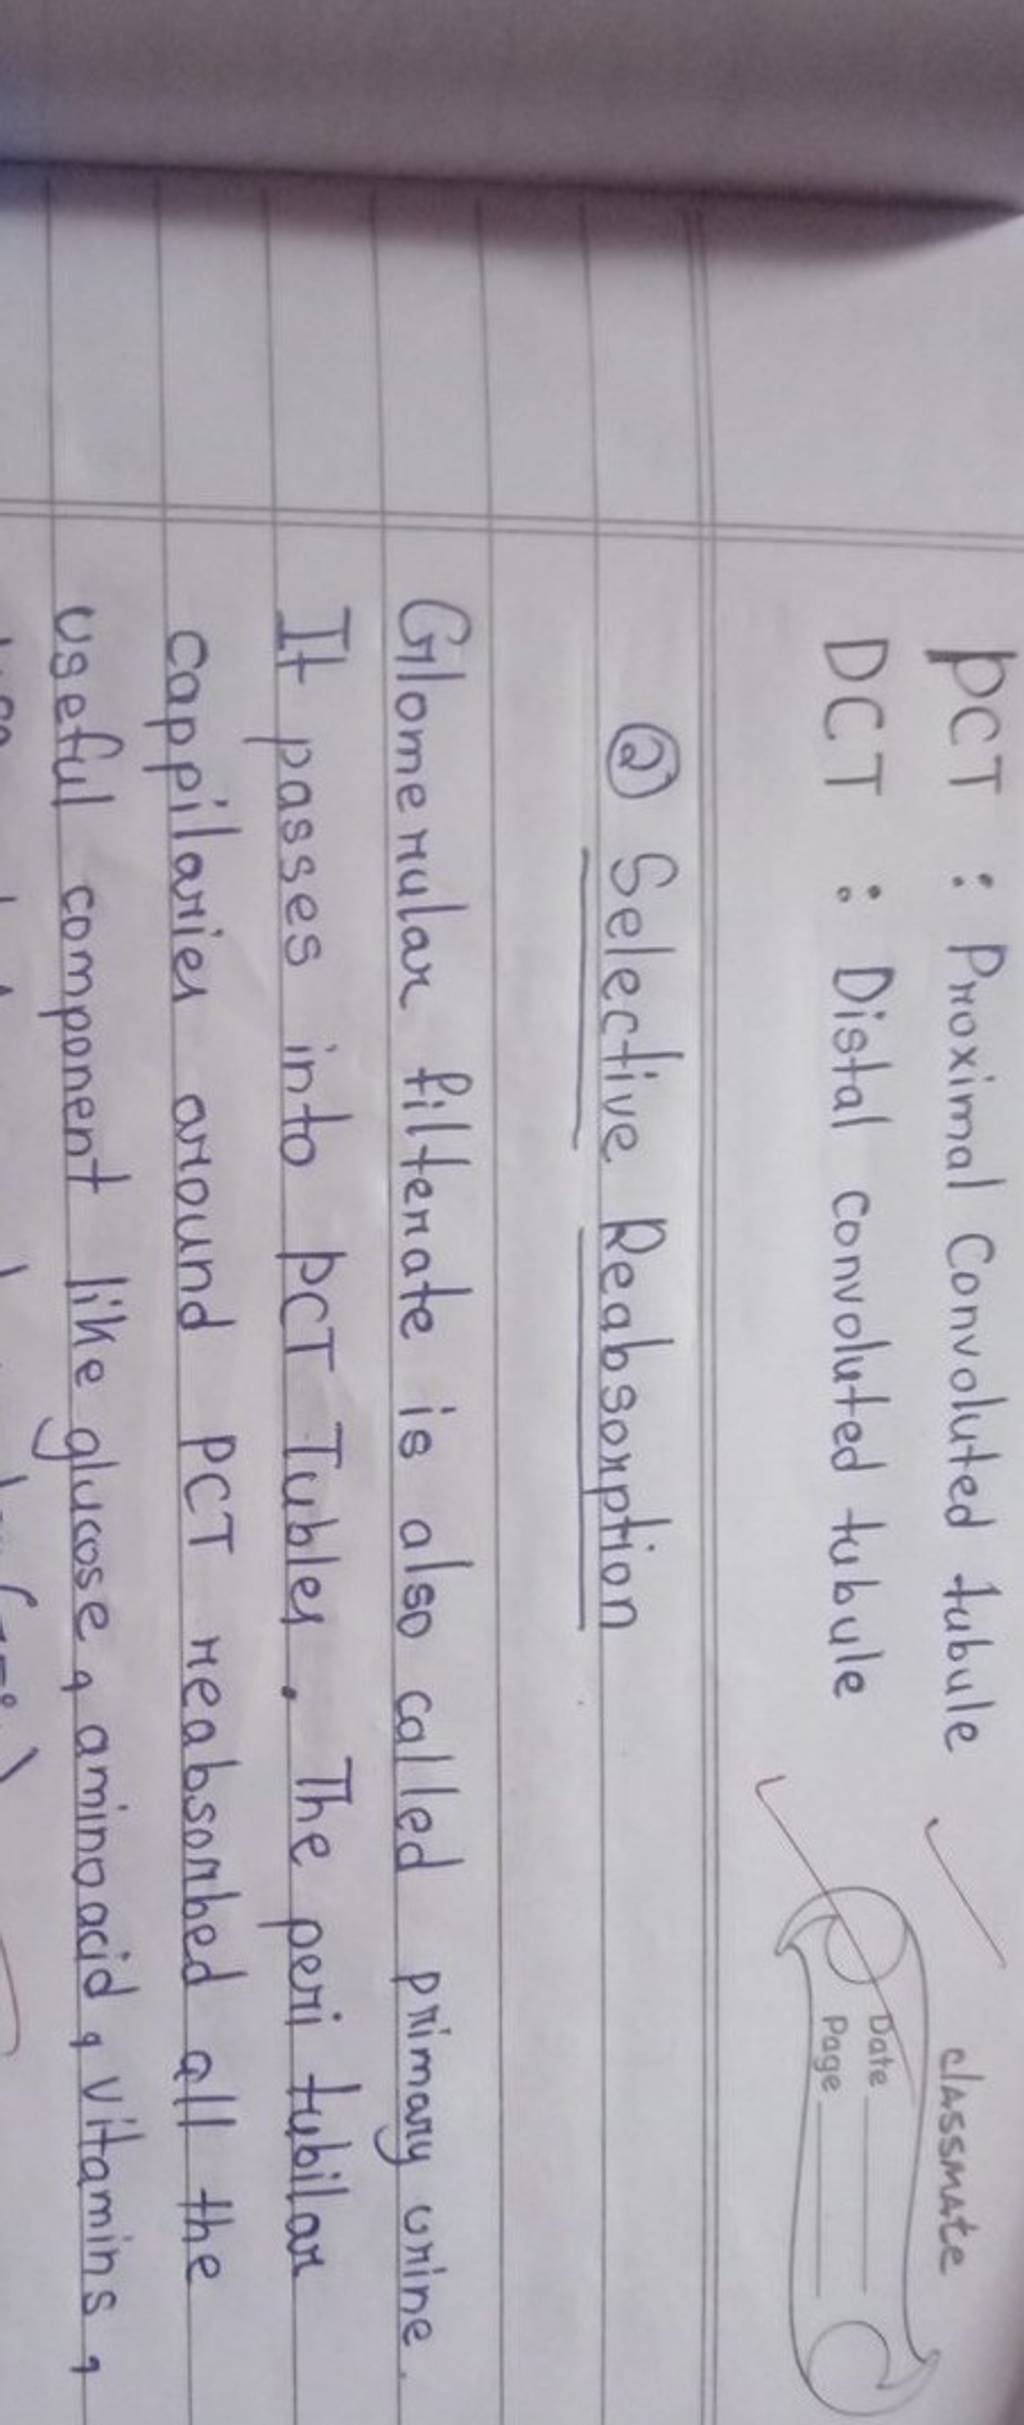 classmate
Date
Page
PCT : Proximal Convoluted tubule
DCT : Distal convoluted tubule
② Selective Reabsorption
Glomerular filterate is also called primary urine.
It passes into PCT Tubles. The peri tubilar
cappilaries around PCT reabsorbed all the
useful component like glucose, aminoacid, vitamins,